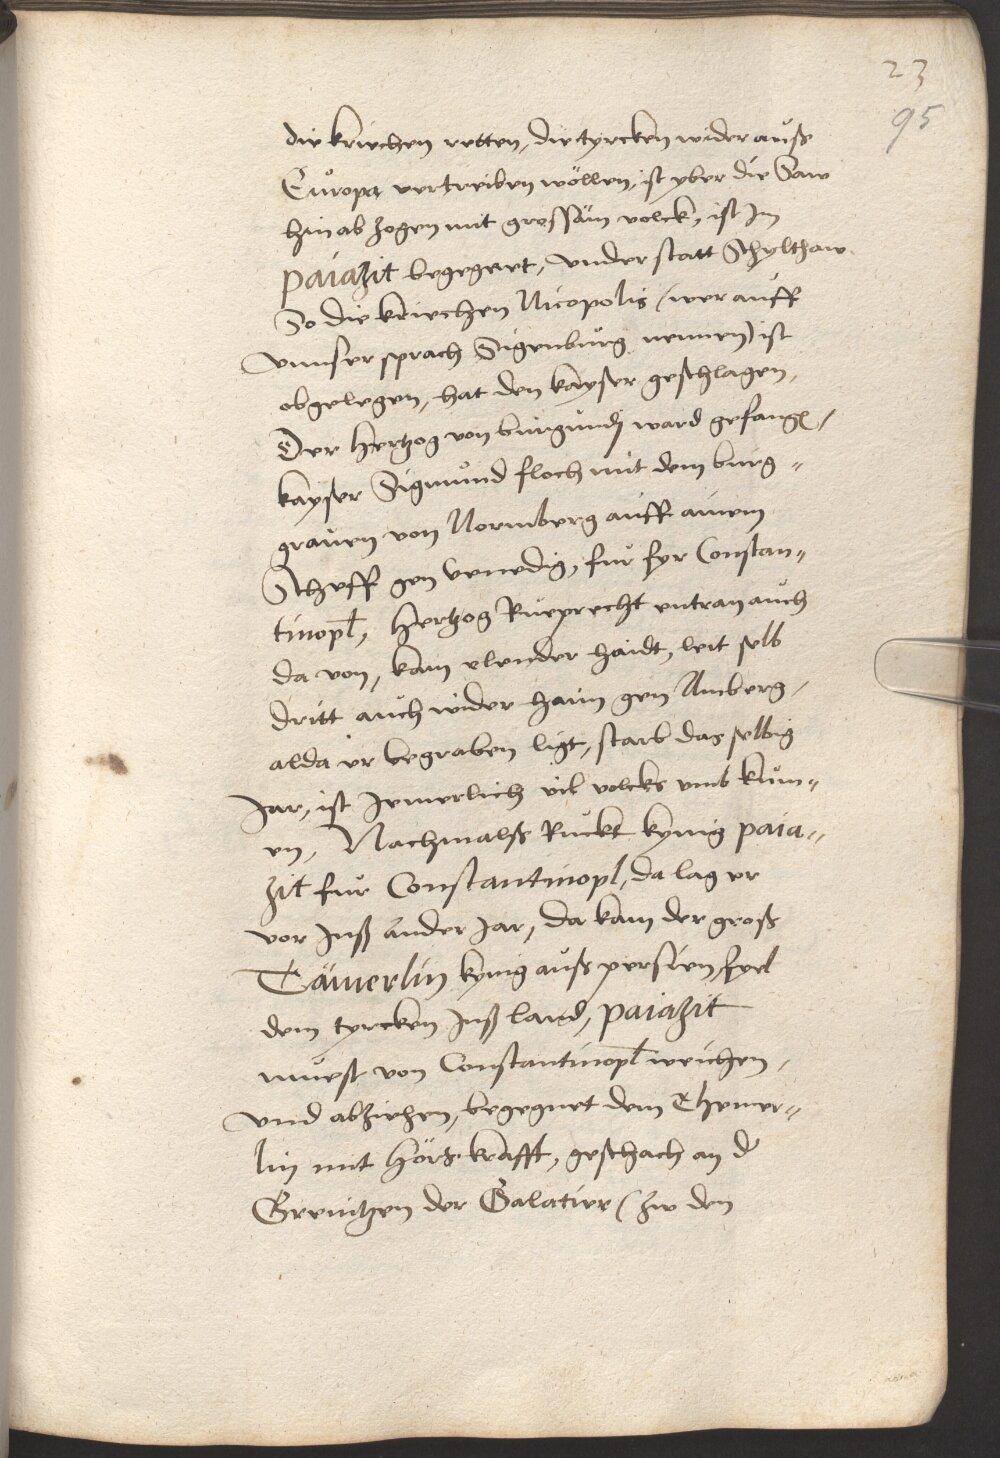 23
95
die kriechen retten, die tyrcken wider auß
Europa vertreiben wöllen, ist yber die Saw
hinab zogen mit grossäm volck, ist Jm
paiazit begegnet, vnder statt Schylthaw
So die kriechen Nicopolis (wer auff
vnnser sprach Sigenburg nennen) ist
obgelegen, hat den kayser geschlagen,
Der Hertzog von burgundj ward gefangen,
kayser Sigmund floch mit dem burg-
graven von Nornberg auff ainem
Scheff gen venedig, fur fyr Constan-
tinopl, Hertzog Rueprecht entran auch
da von, kam elender haidt, leit selb
dritt auch wider haim gen Amberg,
alda er begraben ligt, starb das selbig
Jar, ist Jemerlich vil volcks vmb kum-
en, Nachmalß Ruckt kynig paia-
zit fur Constantinopl, da lag er
vor Jnß ander Jar, da kam der groß
Tämerlin kynig auß persien, fyel
dem tyrcken Jnß land, paiazit
muest von Constantinopl weichen,
vnd abziehen, begegnet dem Themer-
lin mit hörß krafft, geschach an d
Grenitzen der Galatier (zw den